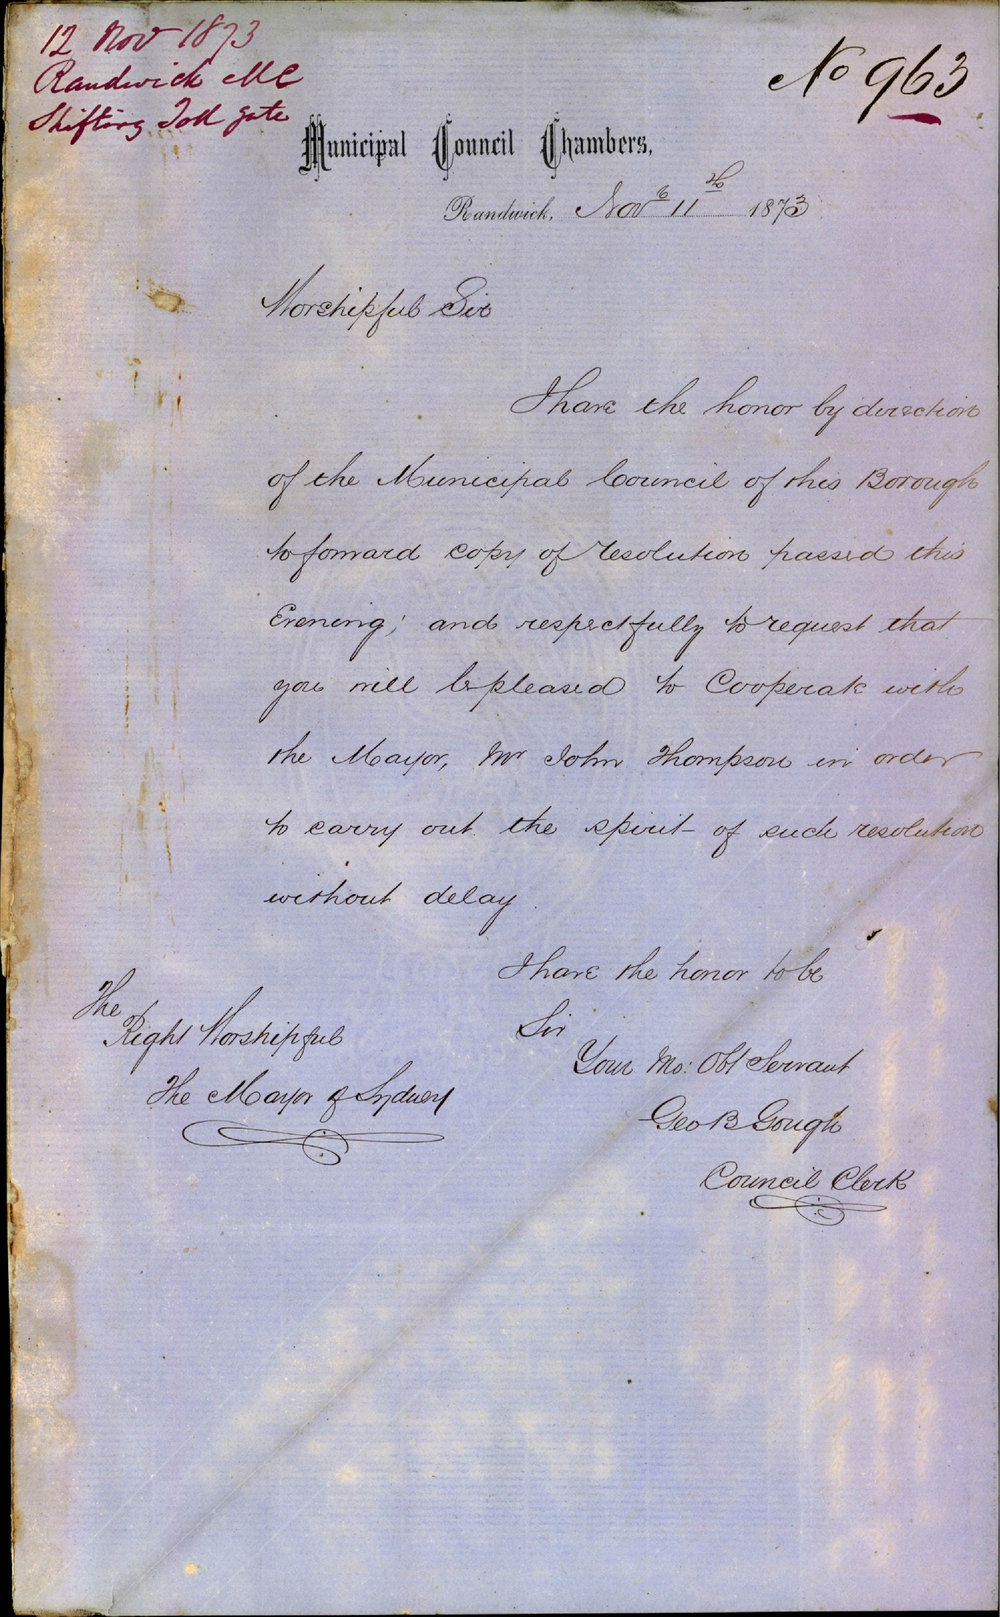 12 Nov 1873
Randwick MC
Shifting Toll gate
No 963
Municipal Council Chambers,
Randwick, Novr 11th 1873
Worshipful Sir
I have the honor by direction
of the Municipal Council of this Borough
to forward copy of resolution passed this
Evening; and respectfully to request that
you will be pleased to Cooperate with
the Mayor, Mr John Thompson in order
to carry out the spirit of such resolution
without delay.
I have the honor to be
Sir
Your Mo: Obt Servant
Geo B Gough
Council Clerk
The
Right Worshipful
The Mayor of Sydney